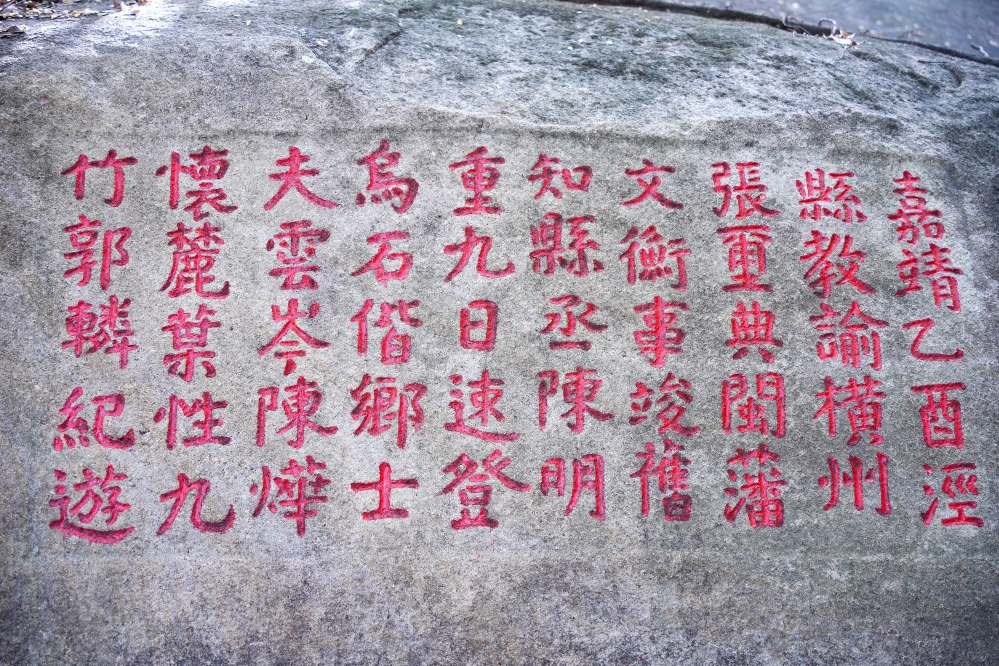 嘉靖乙酉涇
縣教諭橫州
張重典閩藩
文衡事竣舊
知縣丞陳明
重九日速登
烏石偕鄉士
夫雲岑陳燁
懷麓葉性九
竹郭轔紀遊